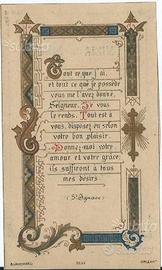 Tout ce que j'ai,
et tout ce que je possède
vous me l'avez donné,
Seigneur. Je vous
le rends. Tout est à
vous, disposez-en selon
votre bon plaisir.
Donnez-moi votre
amour et votre grâce;
ils suffiront à tous
mes désirs
(St Ignace)